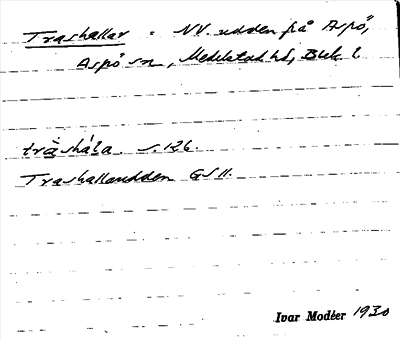 Trashallar - NV. udden på Aspö,
Aspö sn, Medelstad hd, Blek. l
tràshála. s. 126.
Trashallaudden GS 11.
Ivar Modéer 1930